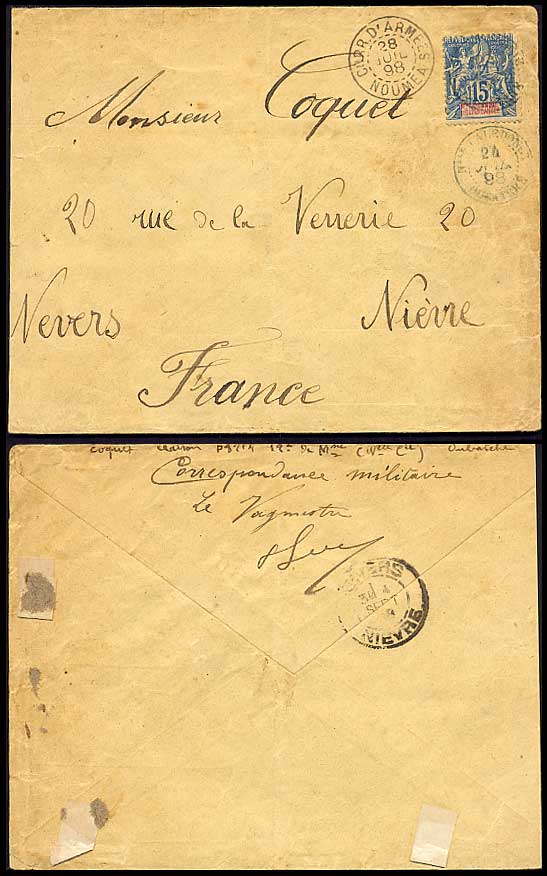 CORR. D'ARMÉES
28
JUIL
98
NOUMEA
15
Monsieur Coquet
24
98
20 rue de la Verrerie 20
Nevers Nièvre
France
Coquet clairon
Correspondance militaire
Le Vaguemestre
NEVERS
4
SEPT
NIEVRE